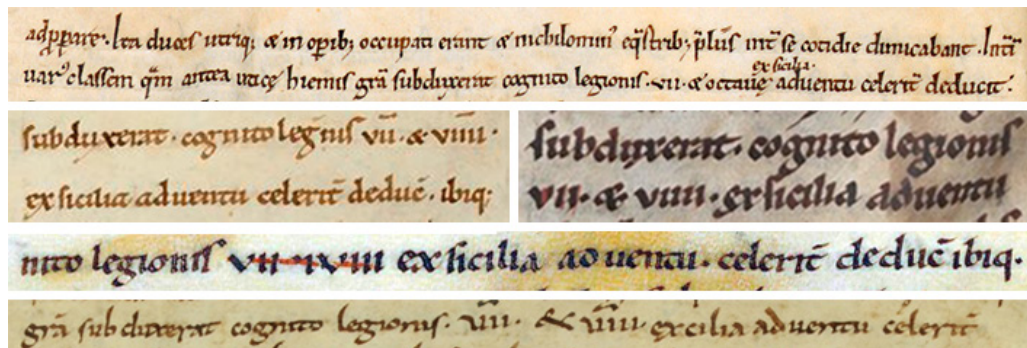 adꝓperare. Ita duces utriq; & in oꝑib; occupati erant & nichilominꝰ eq̄strib; p̄liis int̄ se cotidie dimicabant.
uarꝰ classem q̄m antea uticę hiemis grā subduxerat cognito legionis .vii. & octauę ex sicilia aduentu celerit̄ deducit.
subduxerat. cognito leḡnis vii. & viiii
ex sicilia aduentu celerit̄ deduc̄. ibiq;
subduxerat. cognito legionis
vii. & viiii. ex sicilia aduentu
nito legionis vii ex sicilia aduentu. celerit̄ deduc̄ ibiq.
grā subduxerat cognito legionis. & viiii. excilia aduentu celerit̄